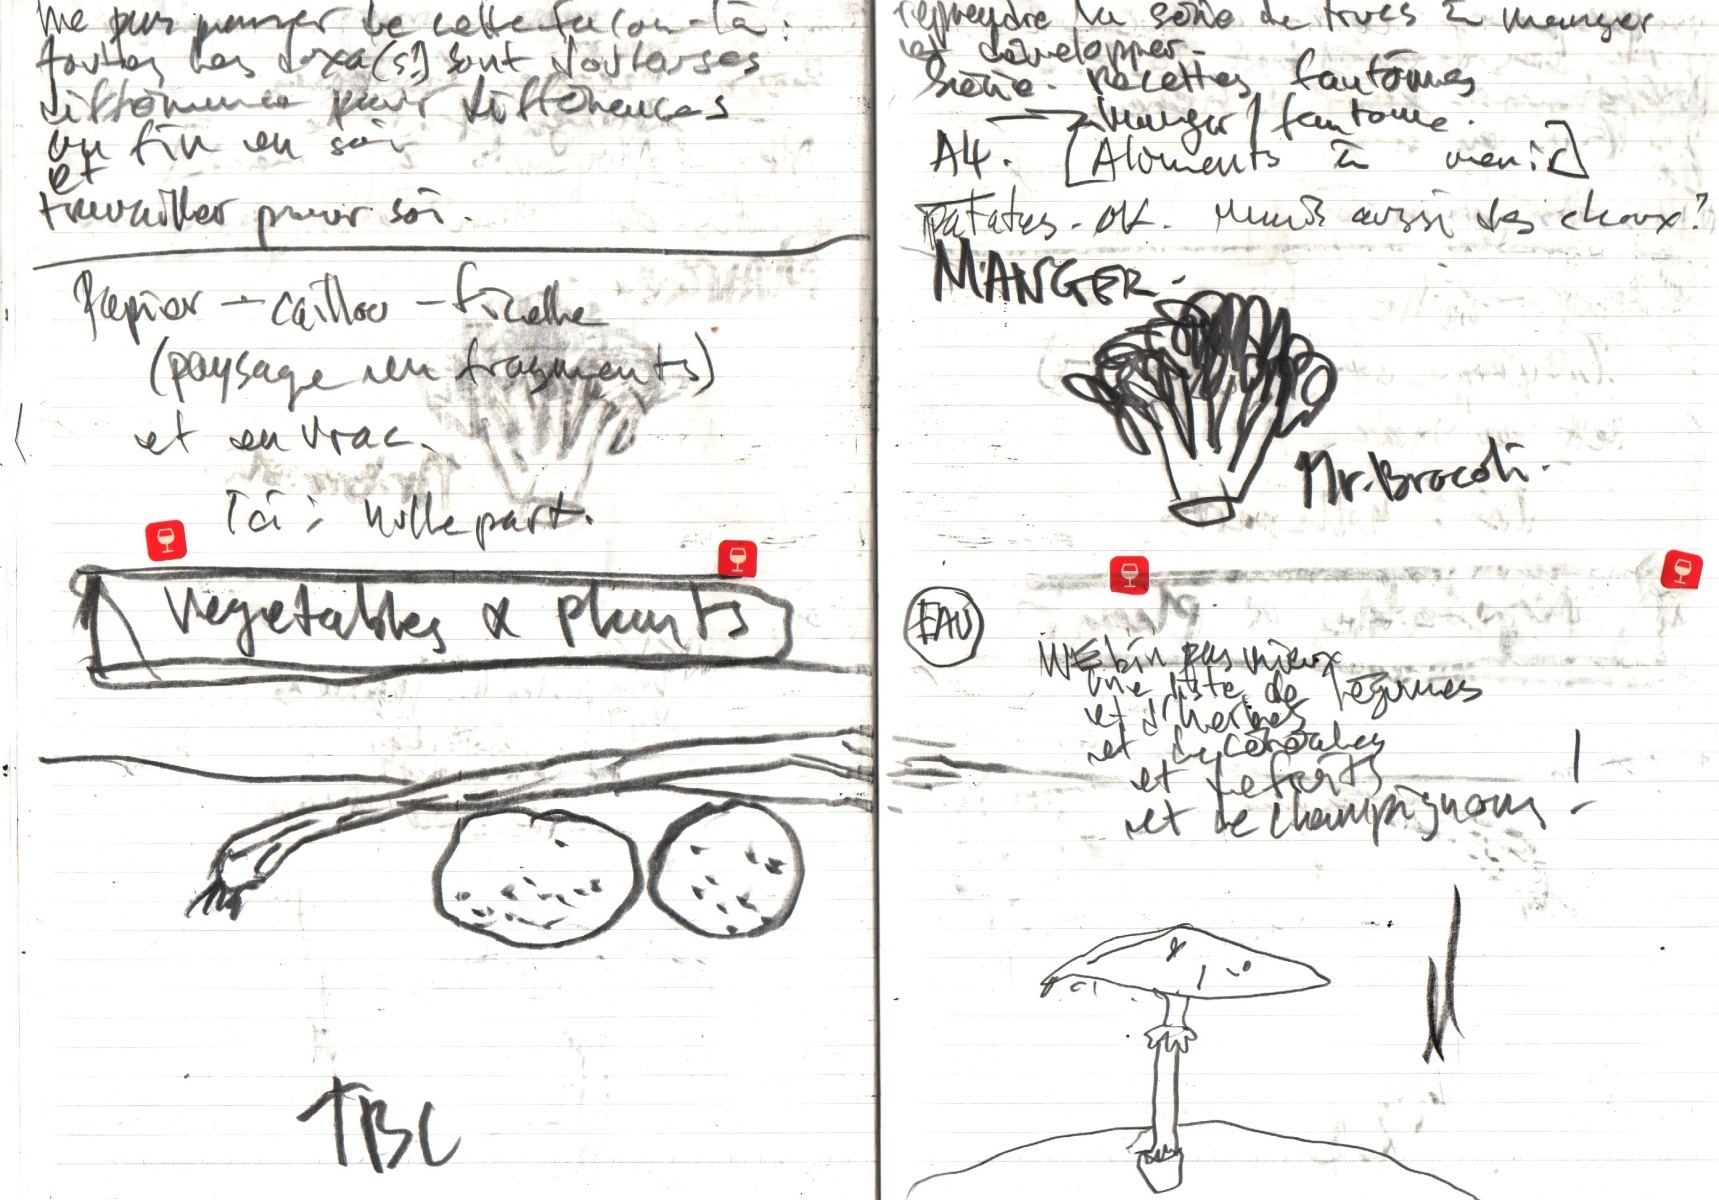 ne pas penser de cette façon-là:
toutes les doxa(s?) sont
différence pour différences
en fin en soi
et
travailler pour soi.
Papier - caillou - ficelle
(paysage en fragments)
et en vrac.
Ici: nulle part.
Vegetables & plants
TBC
reprendre la série de trucs à manger
et développer-
Série. Recettes fantômes
manger / fantôme.
A4. [Aliments à venir]
patates. OK. Mais aussi des choux?
MANGER.
Mr. Brocoli.
EAU
bin pas mieux
une liste de légumes
et d'herbes
et de céréales
et de
et de champignons!